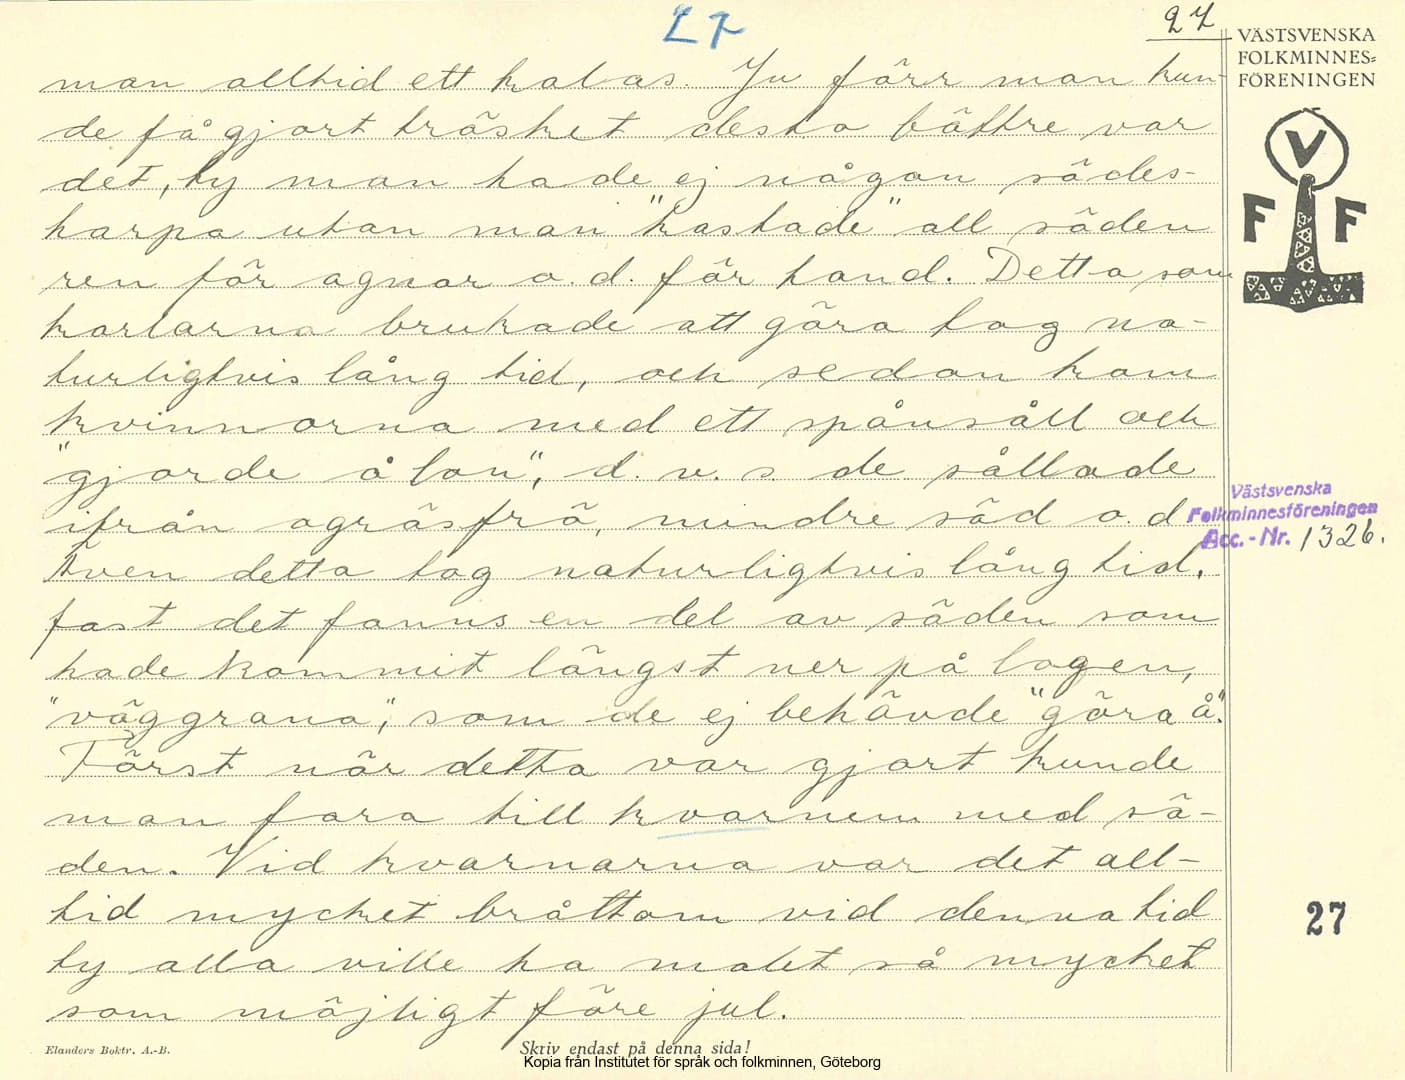 27
27
VÄSTSVENSKA
FOLKMINNES=
FÖRENINGEN
man alltid ett kalas. Ju förr man kun-
de få gjort träsket desto bättre var
det, ty man hade ej någon sädes-
harpa utan man "kastade" all säden
ren för agnar o.d. för hand. Detta som
karlarna brukade att göra tog na-
turligtvis lång tid, och sedan kom
kvinnorna med ett spånsåll och
"gjorde å lon", d.v.s. de sållade
ifrån ogräsfrö, mindre säd o.d.
Även detta tog naturligtvis lång tid.
fast det fanns en del av säden som
hade kommit längst ner på logen,
"väggrana", som de ej behövde "göra å".
Först när detta var gjort kunde
man fara till kvarnem med sä-
den. Vid kvarnarna var det all-
tid mycket bråttom vid denna tid
ty alla ville ha malet så mycket
som möjligt före jul.
V
F F
Västsvenska
Folkminnesföreningen
Acc.-Nr. 1326.
27
Elanders Boktr. A.-B.
Skriv endast på denna sida!
Kopia från Institutet för språk och folkminnen, Göteborg